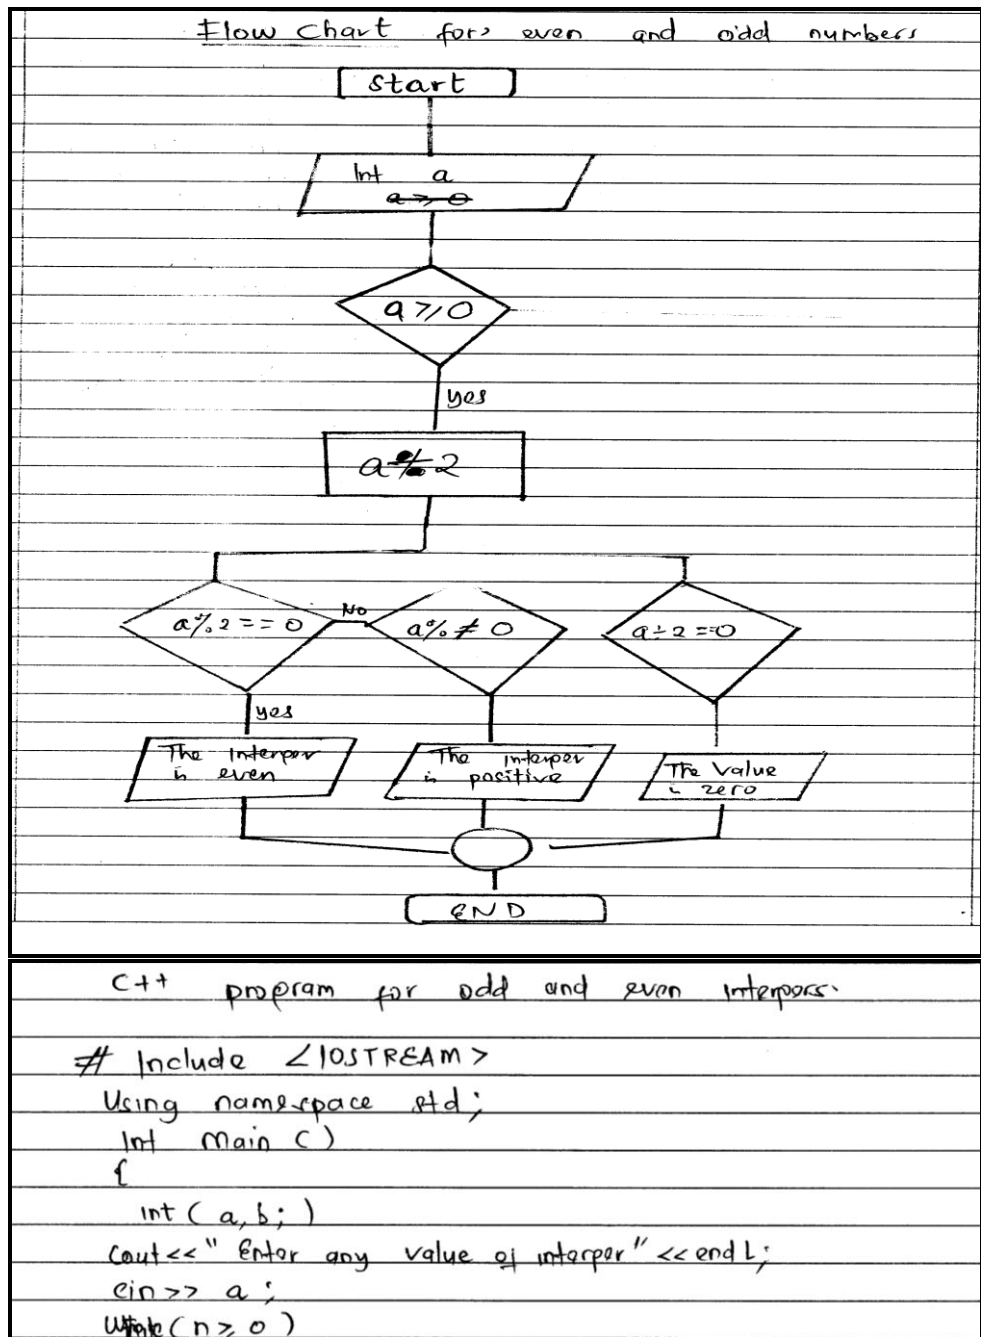 Flow Chart for even and odd numbers
Start
Int a
a ⩾ 0
a ⩾ 0
yes
a % 2
a % 2 = = 0
No
a % ≠ 0
a ÷ 2 == 0
yes
The interper
is even
The interper
is positive
The Value
is zero
END
C++ program for odd and even interpers.
# Include <IOSTREAM>
Using namespace std;
Int main ()
{
int ( a, b; )
Cout << " Enter any value of interper" << endL;
cin >> a ;
(n ⩾ 0 )